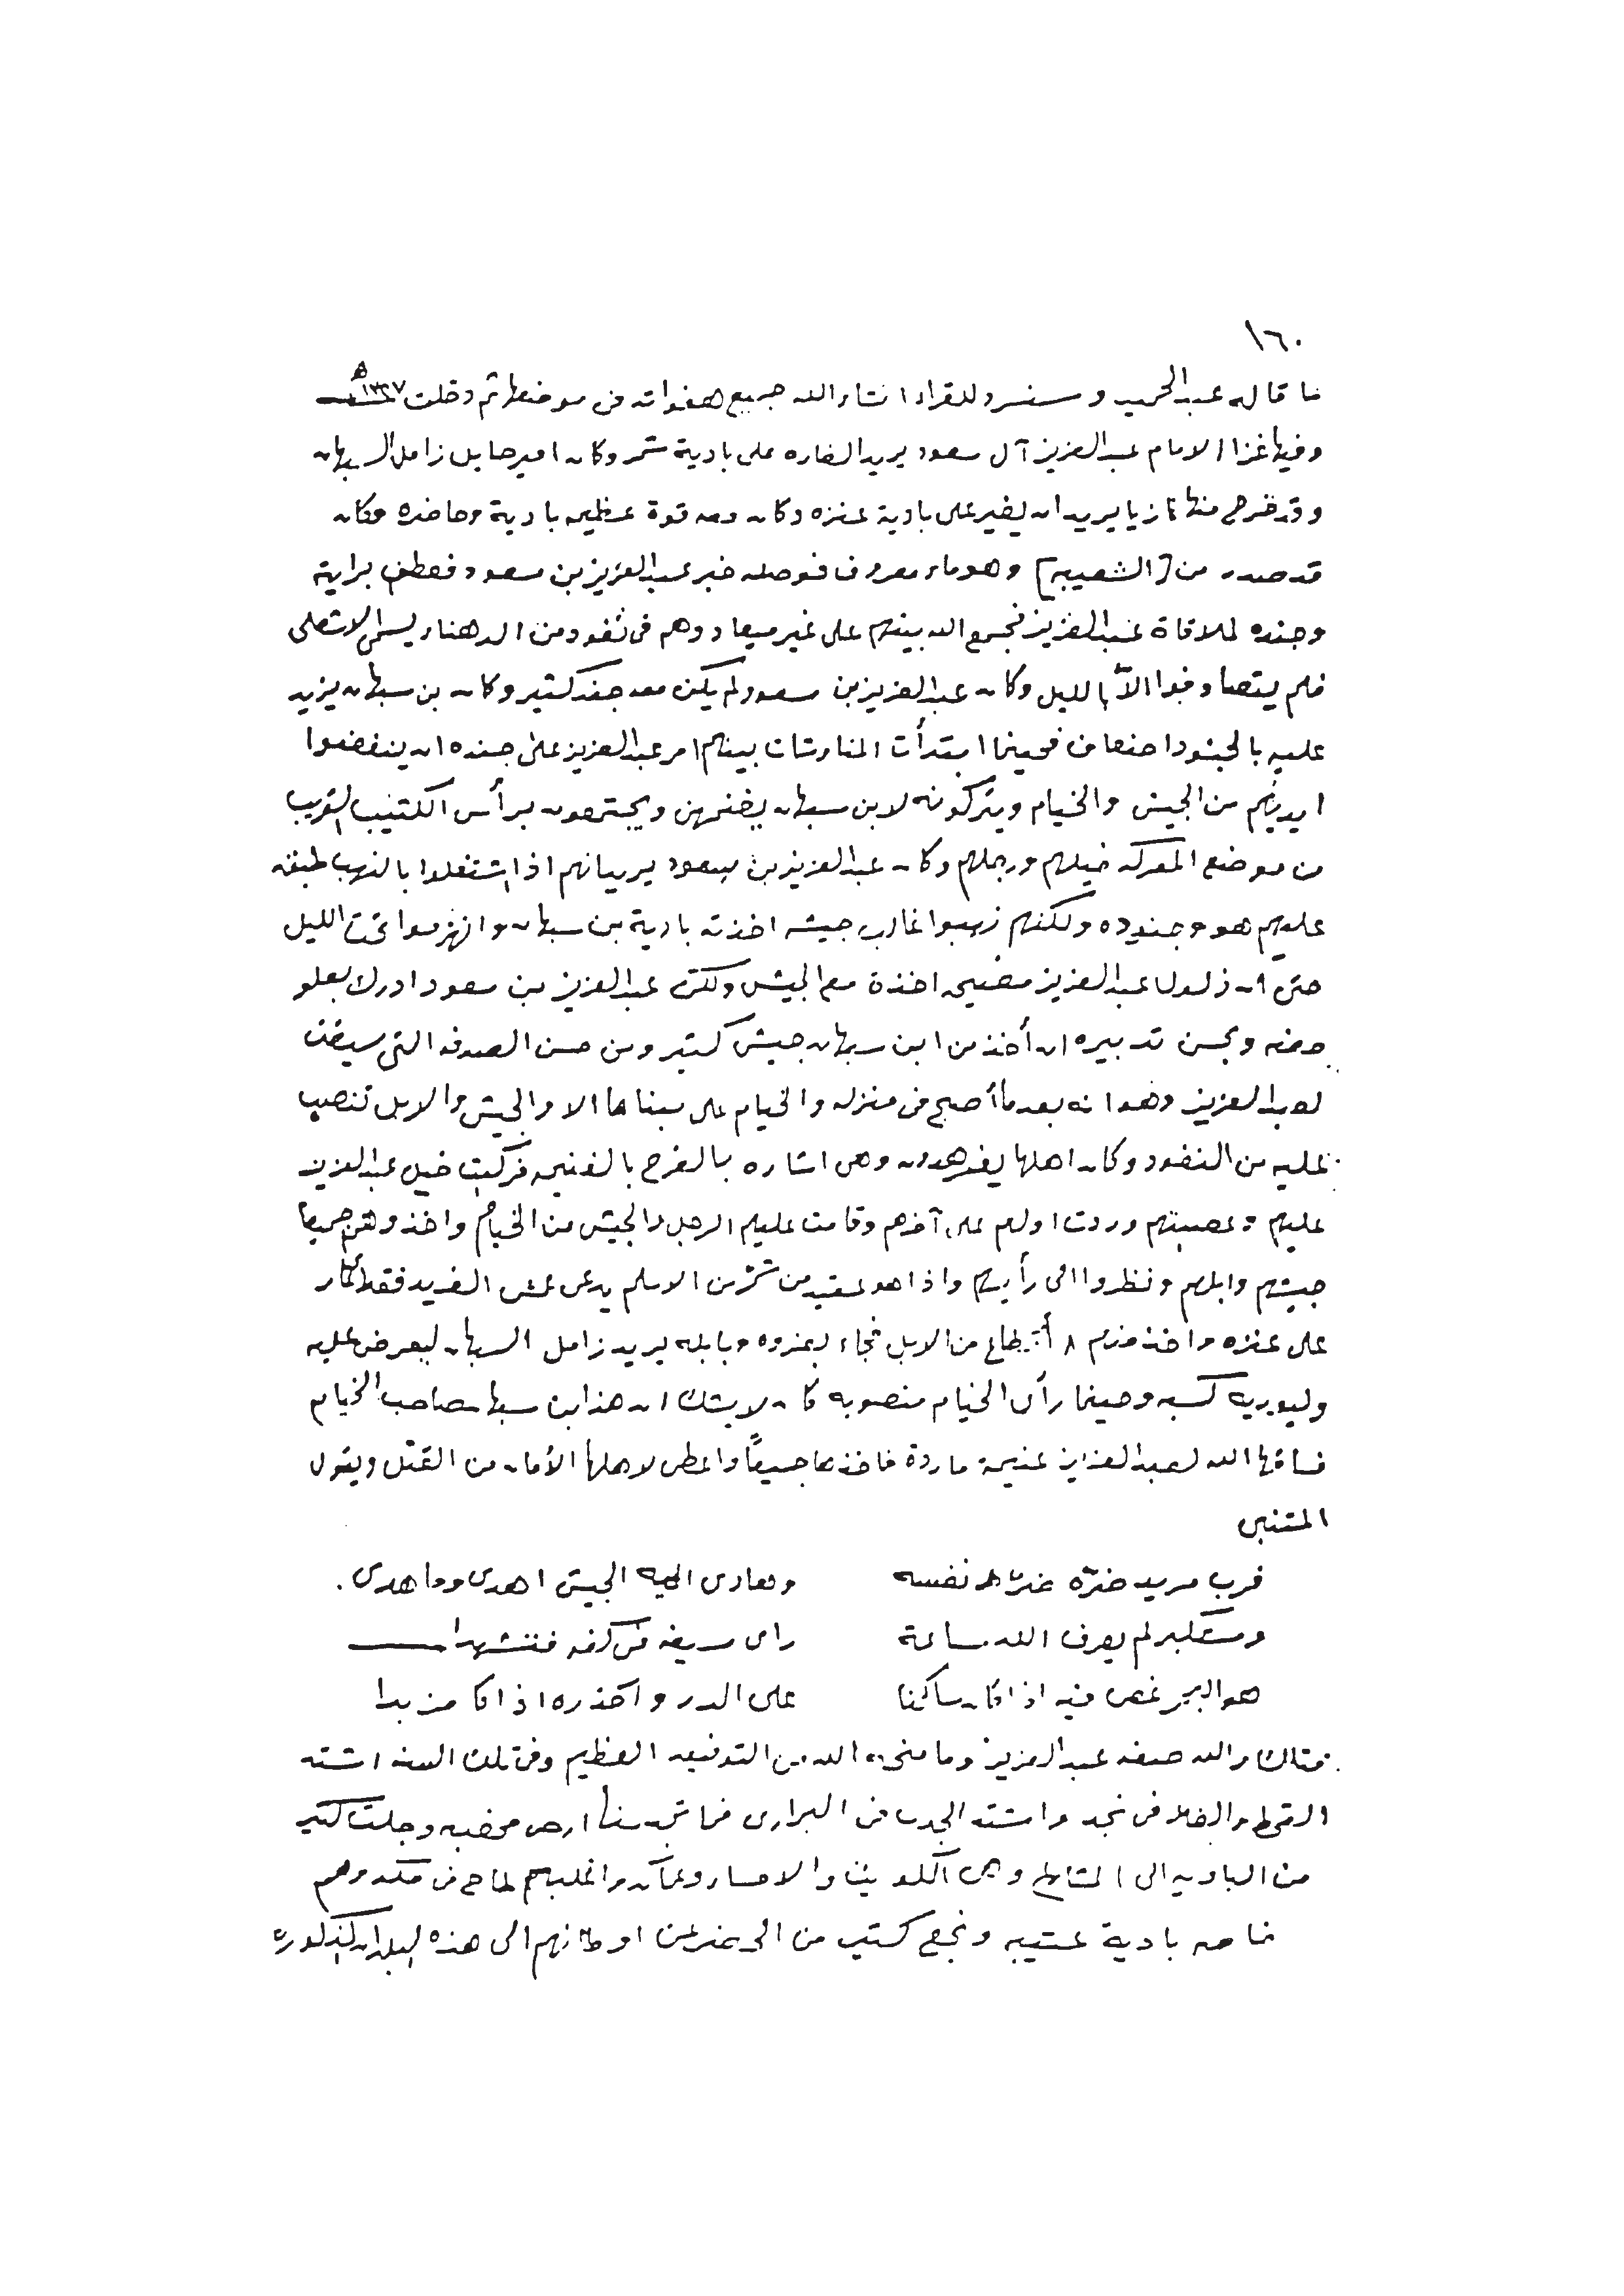 ١٦٠
ما قاله عبدالحميد وسنسرد للقراء انشاء الله جميع هفواته في موضعها ثم دخلت سنة ١٣٢٧هـ
وفيها غزا الامام عبدالعزيز آل سعود يريد الغاره على بادية شمر وكان امير حايل زامل السبهان
وقد خرج منها غازيا يريد ان يغير على بادية عنزه وكان معه قوة عظيمه بادية وحاضره وكان
قد صدر من [الشعيبه] وهو ماء معروف فوصله خبر عبدالعزيز بن سعود فعطف براية
وجنده لملاقاة عبدالعزيز فجمع الله بينهم على غير ميعاد وهم في نفود من الدهناء يسمى الاشعلى
فلم يتصادفوا الاّ بالليل وكان عبدالعزيز بن سعود لم يكن معه جند كثير وكان بن سبهان يزيد
عليه بالجنود اضعاف فحينما ابتدأت المناوشات بينهم امر عبدالعزيز على جنده ان ينفضوا
ايديهم من الجيش والخيام ويتركونه لابن سبهان يغنمهن ويجتمعون برأس الكثيب القريب
من موضع المعركه خيلهم ورجلهم وكان عبدالعزيز بن سعود يريد انهم اذا اشتغلوا بالنهب طبق
عليهم هو وجنوده ولكنهم نهبوا غالب جيشه اخذته بادية بن سبهان وانهزموا تحت الليل
حتى ان ذلول عبدالعزيز مصيحه اخذة مع الجيش ولكن عبدالعزيز بن سعود ادرك بعلو
حضه وبحسن تدبيره ان أخذ من ابن سبهان جيش كثير ومن حسن الصدفه التي سيقت
لعبدالعزيز وهو انه بعد ما أصبح في منزله والخيام على بناها الا والجيش والابل تنصب
عليه من النفود وكان اهلها يغدهدون وهي اشاره بالفرح بالغنيمه فركبت خيل عبدالعزيز
عليهم وردت اولهم على آخرهم وقامت عليهم الرجل والجيش من الخيام واخذوهن جميعا
جيشهم وابلهم ونظروا الى رأيهم واذا هو عقيد من شمر من الاسلم يدعى عمش الفريد فقد اغار
على عنزه واخذ منهم ٨ أقطاع من الابل فجاء بغزوه وبابله يريد زامل السبهان ليعرض عليه
وليوريه كسبه وحينما رأى الخيام منصوبه كان لايشك ان هذا ابن سبهان صاحب الخيام
فساقها الله لعبدالعزيز غنيمة باردة فاخذها جميعاً واعطى لاهلها الأمان من القتل ويقول
المتنبي
فرب مريد ضرّه ضر نفسه ⁠ وهادى اليه الجيش اهدى وما هدى
ومستكبر لم يعرف الله ساعة ⁠ راى سيفه في كفه فتشهدا
هو البحر غص فيه اذا كان ساكنا ⁠ على الدر واحذره اذا كا مزبدا
فتلك والله صفه عبدالعزيز وما منحه الله من التوفيق العظيم وفي تلك السنه اشتد
القحط والغلا في نجد واشتد الجدب في البراري فما تجد بها ارض مخصبه وجلت كثير
من الباديه الى الشام وهي الكويت والاحساء وعمان واغلبهم لماح في مكه وهم
خاصه بادية عتيبه ونجع كثير من الحضر عن اوطانهم الى هذه البلدان المذكوره